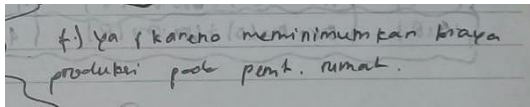 f.) ya, karena meminimumkan biaya
produksi pada pemb. rumah.